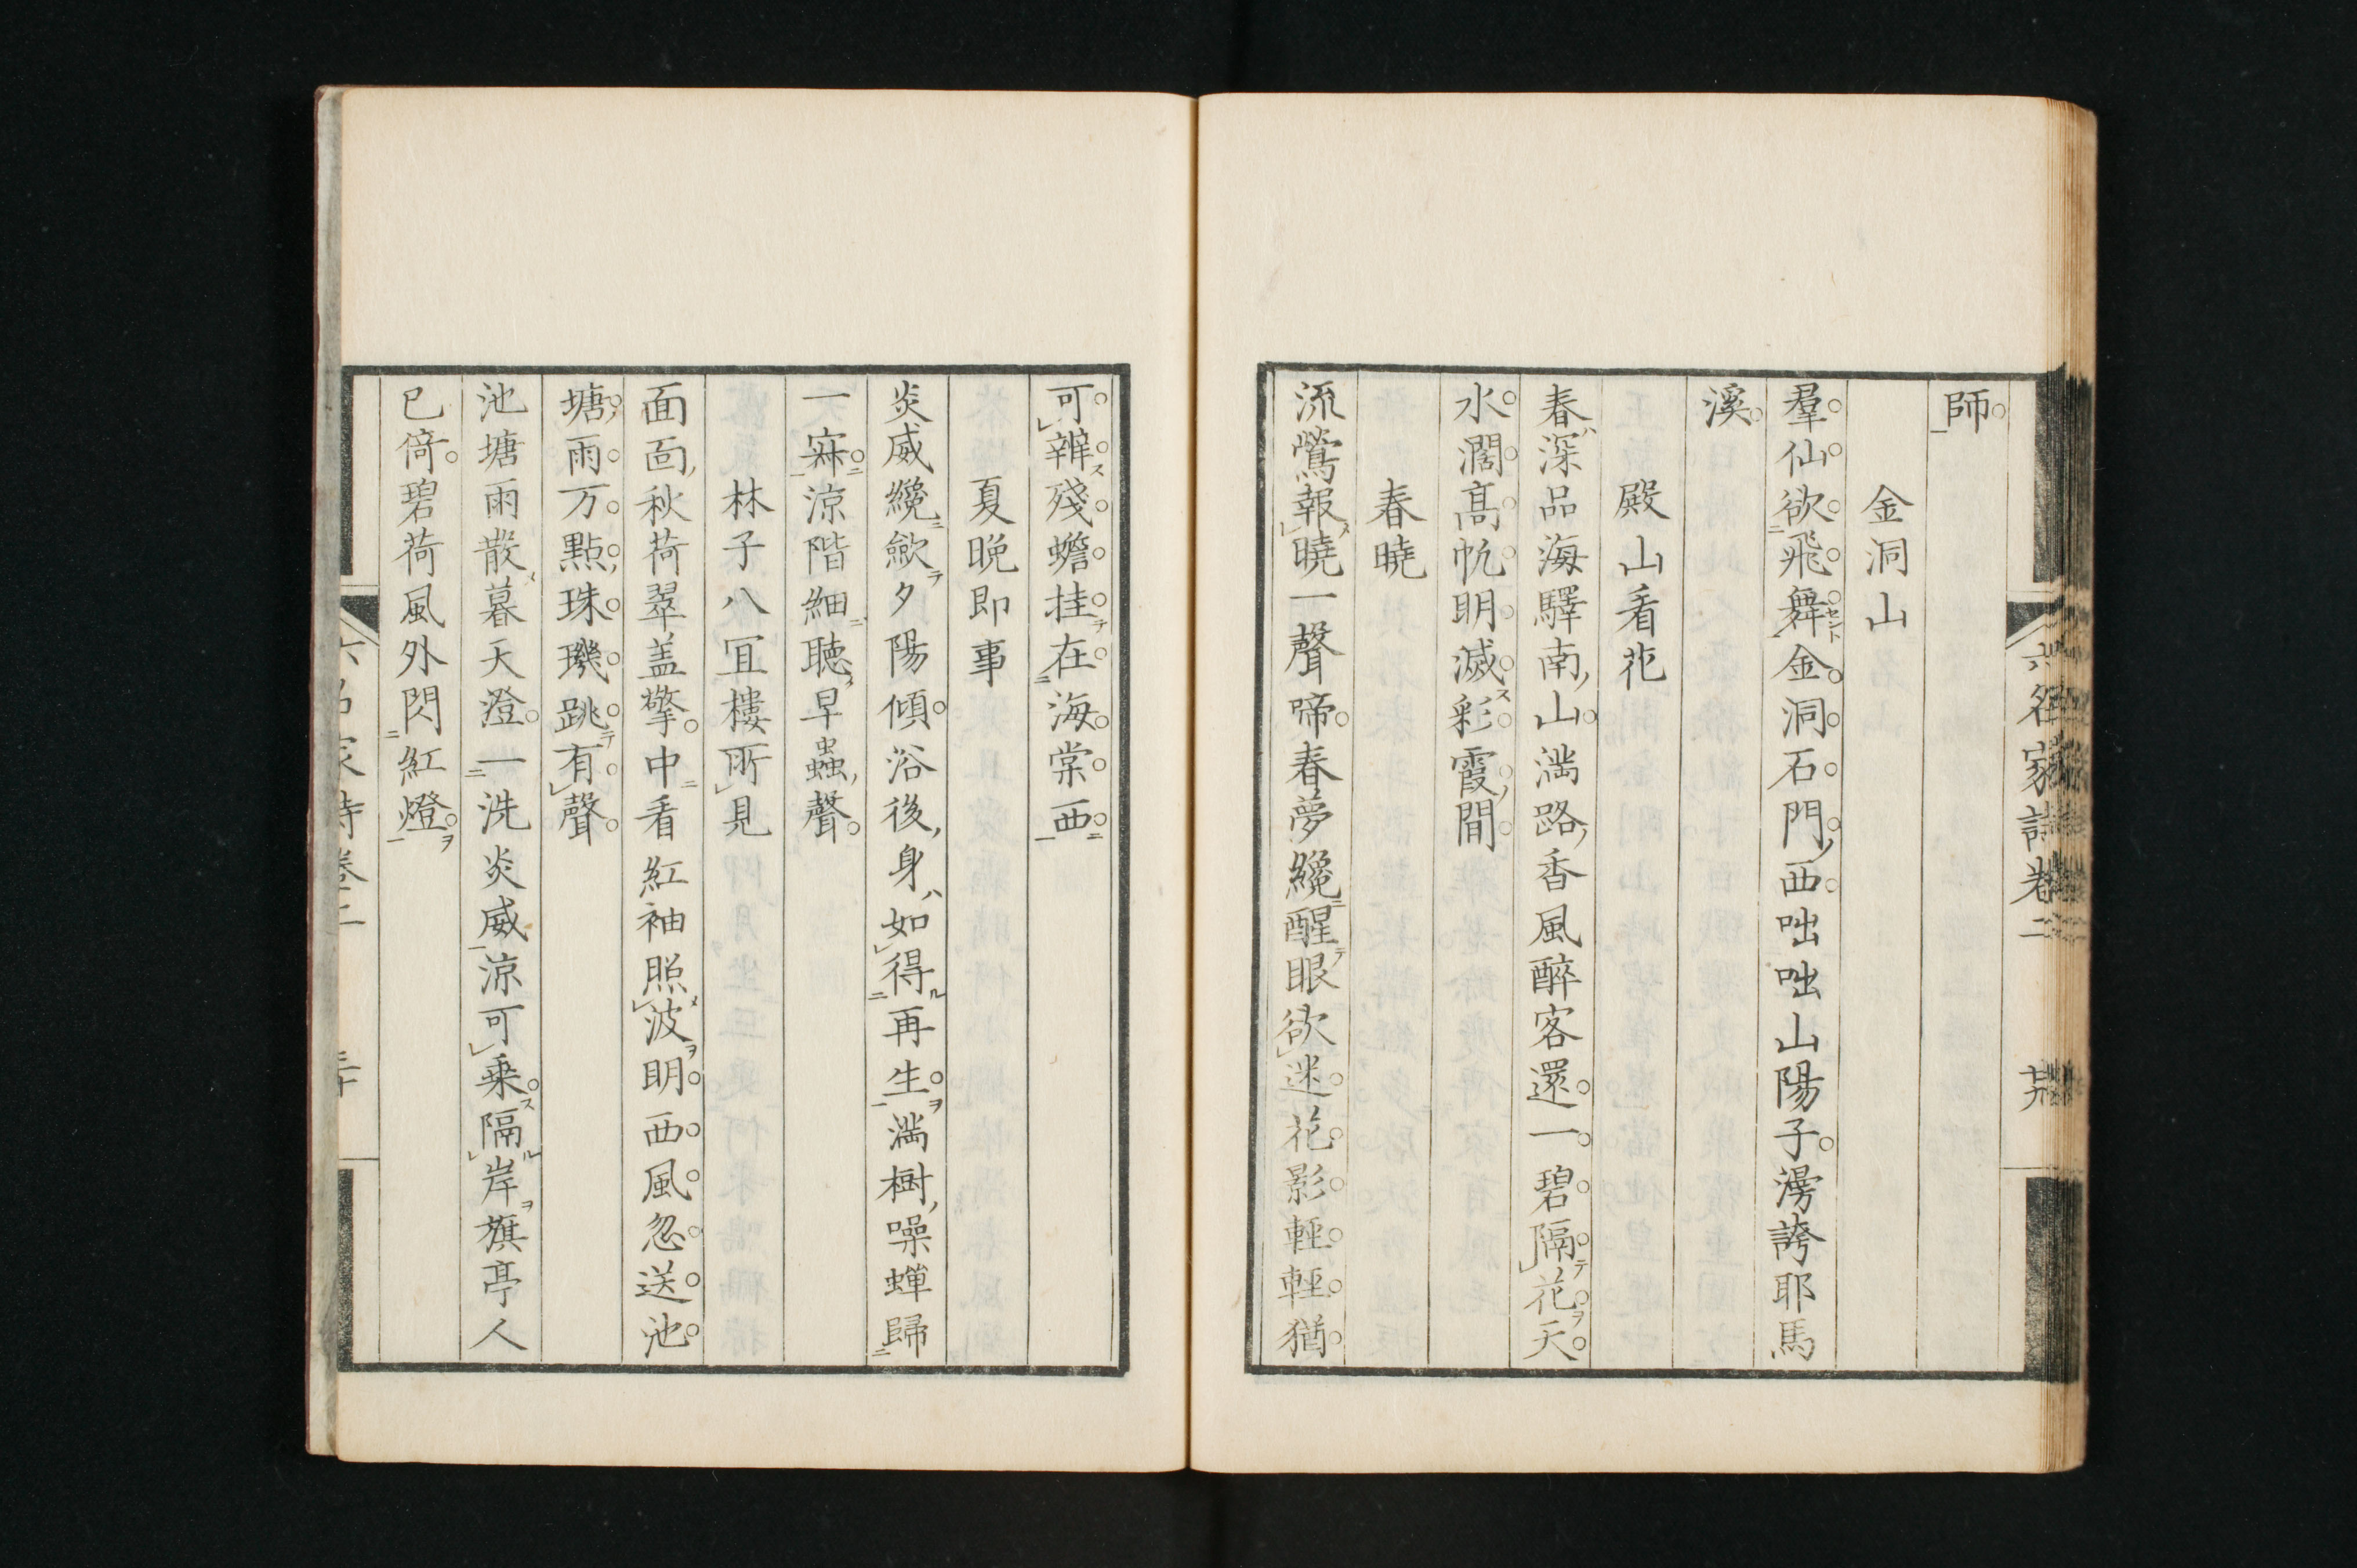 師
金洞山
羣仙欲飛舞金洞石門西咄咄山陽子漫誇耶馬
溪
殿山看花
春深品海驛南山滿路香風醉客還一碧隔花天
水濶高帆明滅彩霞間
春曉
流鶯報曉一聲啼春夢纔醒眼欲迷花影輕輕猶
可辨殘蟾挂在海棠西
夏晚即事
炎威纔歛夕陽傾浴後身如得再生満樹噪蟬歸
一寐涼階細聴早蟲聲
林子八冝樓所見
面面秋荷翠盖擎中看紅袖照波明西風忽送池
塘雨万點珠璣跳有聲
池塘雨散暮天澄一洗炎威涼可乗隔岸旗亭人
已倚碧荷風外閃紅燈